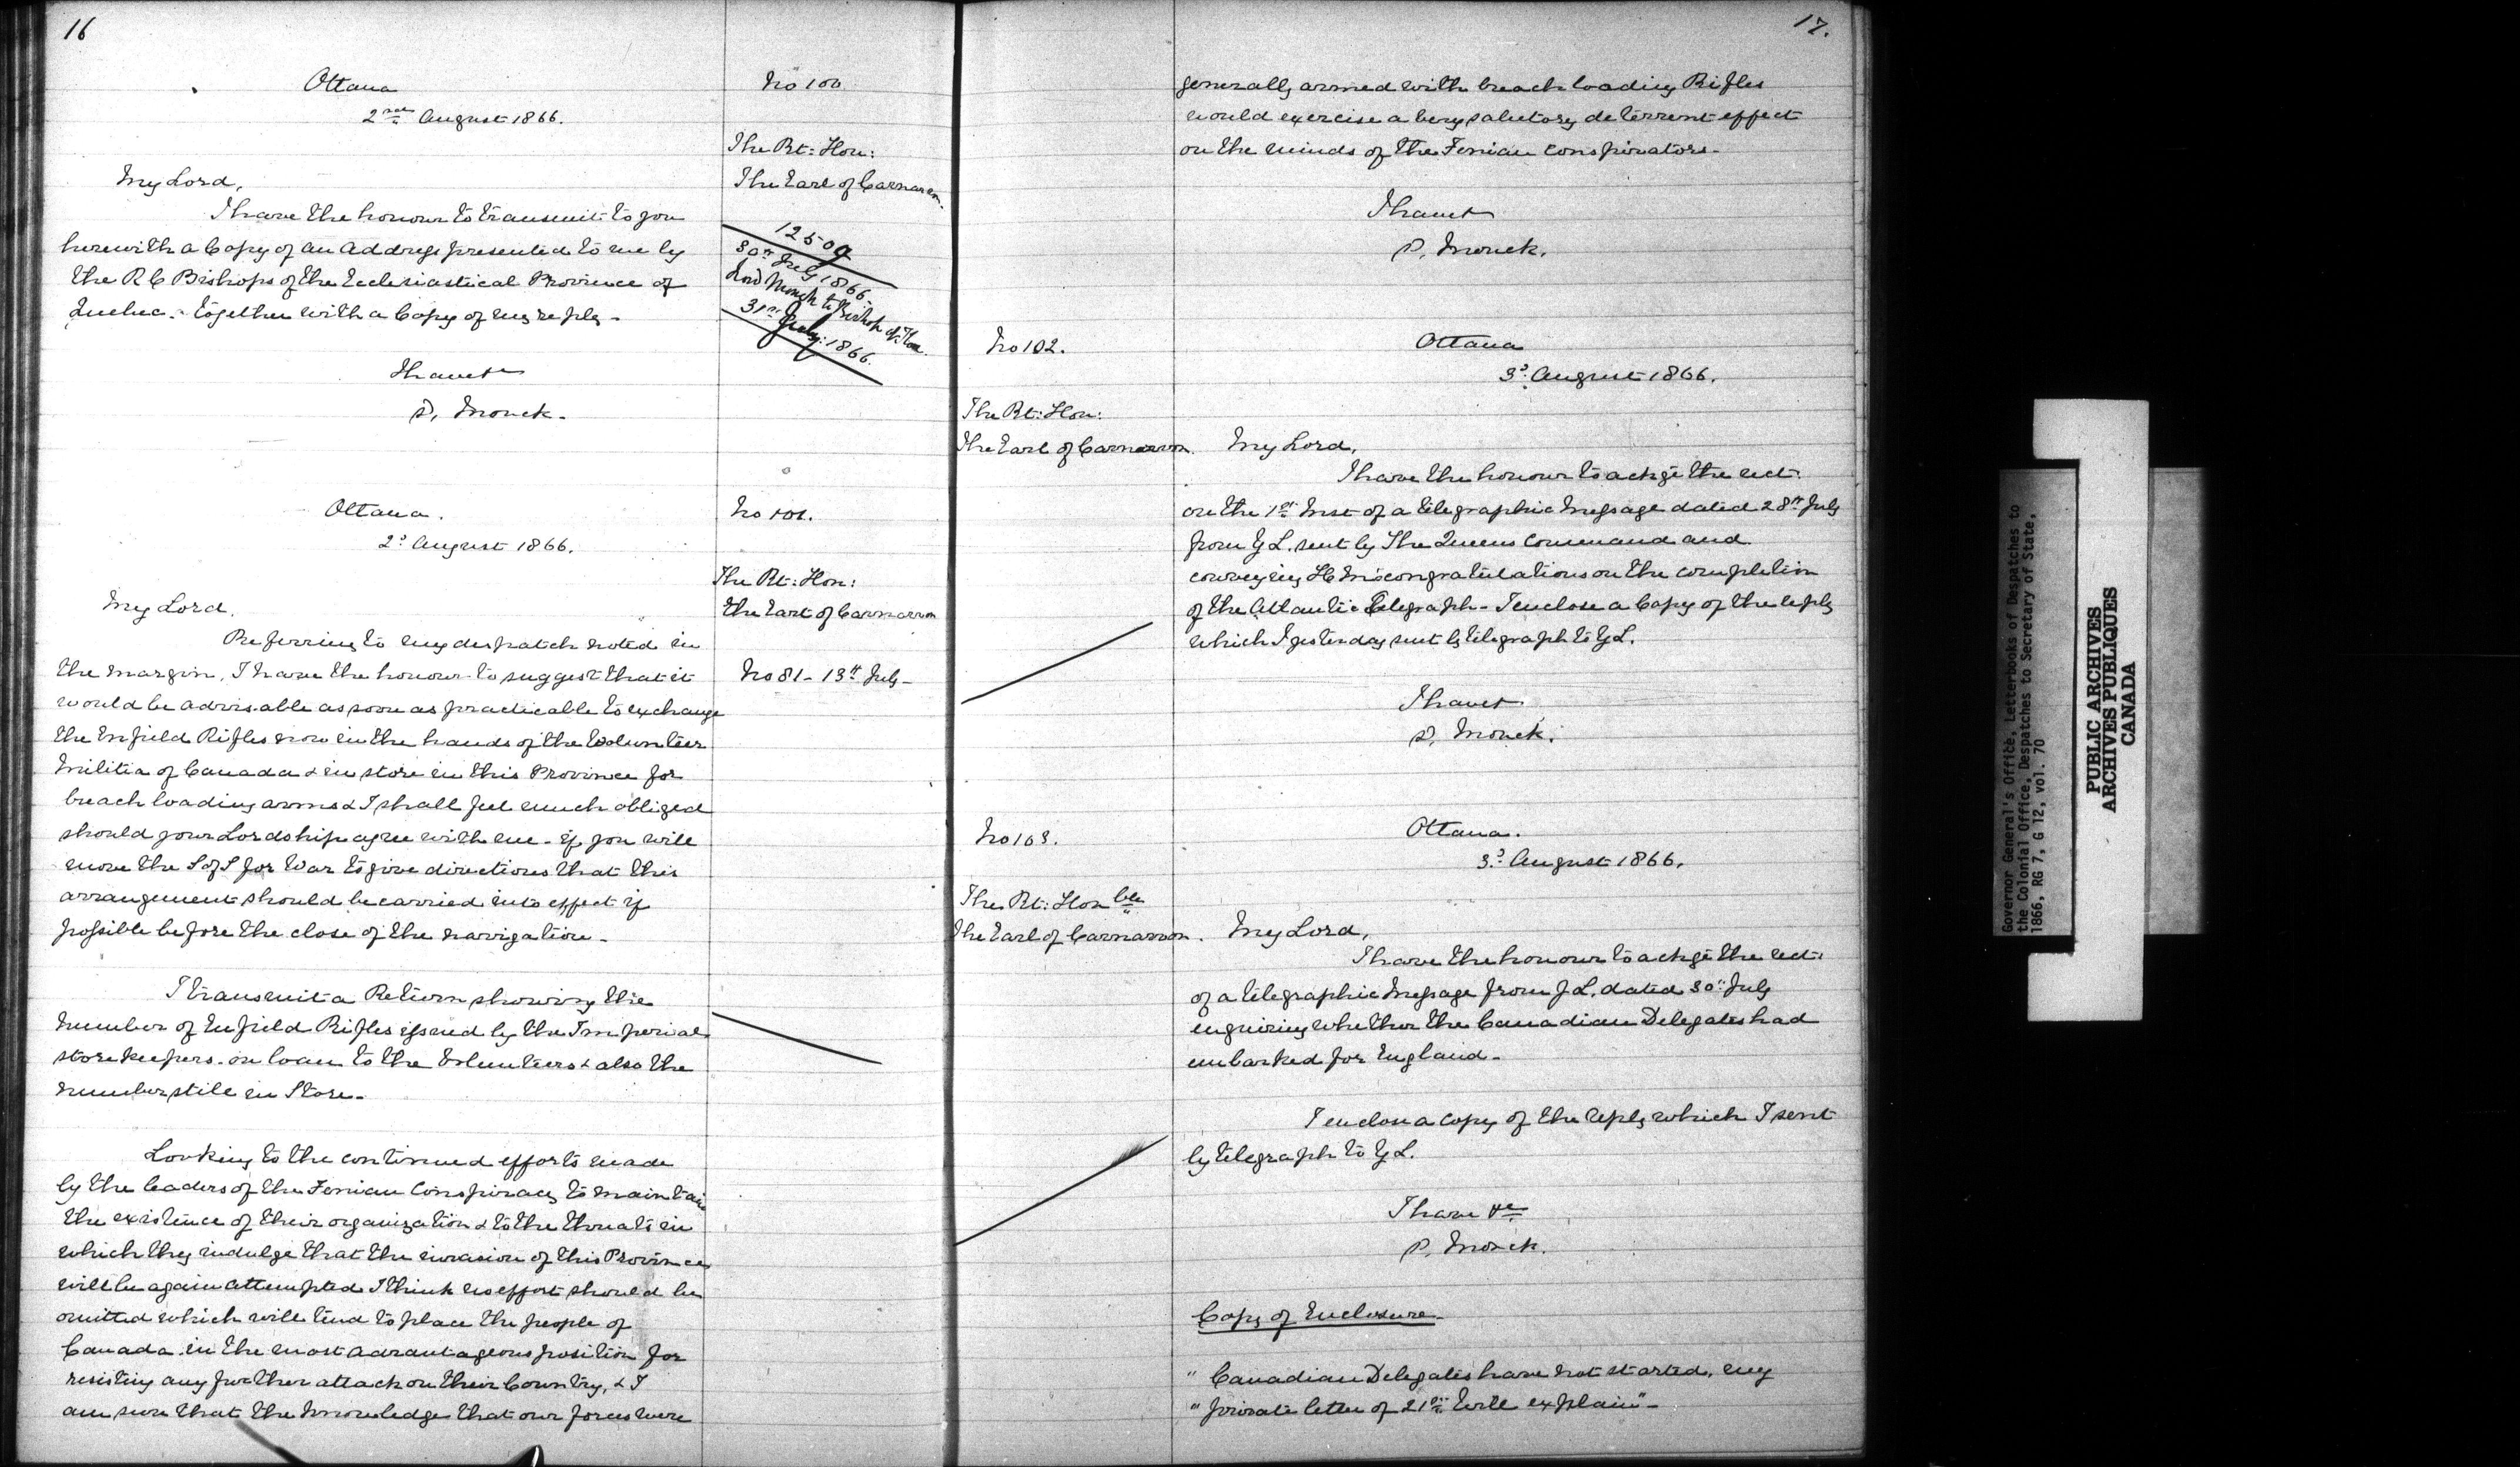 16
Ottawa
2nd August 1866.
No 100
The Rt: Hon:
The Earl of Carnarvon.
My Lord,
I have the honour to transmit to you
herewith a Copy of an Address presented to me by
the R C Bishops of the Ecclesiastical Province of
Quebec. together with a Copy of my reply -
12509
30th July 1866.
Lord Monck to Bishop of
31st July: 1866.
I have &c
S, Monck.
Ottawa.
2d August 1866.
No 101.
The Rt: Hon:
the Earl of Carnarvon
My Lord,
Referring to my despatch noted in
the margin, I have the honour to suggest that it
No 81 - 13th July -
would be advisable as soon as practicable to exchange
the Enfield Rifles now in the hands of the Volunteer
Militia of Canada & in store in this Province for
breach loading arms & I shall feel much obliged
should your Lordship agree with me - if you will
move the S of S for War to give directions that this
arrangement should be carried into effect if
possible before the close of the navigation -
I transmit a Return showing the
number of Enfield Rifles issued by the Imperial
storekeepers. on loan to the Volunteers & also the
number still in Store -
Looking to the continued efforts made
by the leaders of the Fenian Conspiracy to maintain
the existence of their organization & to the threats in
which they indulge that the invasion of this Province
will be again attempted I think no effort should be
omitted which will tend to place the people of
Canada in the most advantageous position for
resisting any further attack on their Country, & I
am sure that the knowledge that our forces were
17.
generally armed with breach loading Rifles
would exercise a very salutory deterrent effect
on the minds of the Fenian conspirators -
I have &c
S, Monck.
No 102.
Ottawa
3d August 1866.
The Rt: Hon:
The Earl of Carnarvon.
My Lord,
I have the honour to ackge the rect:
on the 1st Inst of a telegraphic Message dated 28th July
from Y L. sent by The Queens Command and
conveying H M's congratulations on the completion
of the Atlantic Telegraph - I enclose a Copy of the reply
which I yesterday sent by telegraph to Y L.
I have &c
S, Monck.
No 103.
Ottawa.
3d August 1866.
The Rt: Honble
The Earl of Carnarvon.
My Lord,
I have the honour to ackge the rect:
of a telegraphic Message from Y L. dated 30th July
enquiring whether the Canadian Delegates had
embarked for England -
I enclose a copy of the reply which I sent
by telegraph to Y L.
I have &c
S, Monck.
Copy of Enclosure -
" Canadian Delegates have not started, my
" private letter of 21st will explain" -
Governor General's Office, Letterbooks of Despatches to
the Colonial Office, Despatches to Secretary of State,
1866, RG 7, G 12, vol. 70
PUBLIC ARCHIVES
ARCHIVES PUBLIQUES
CANADA